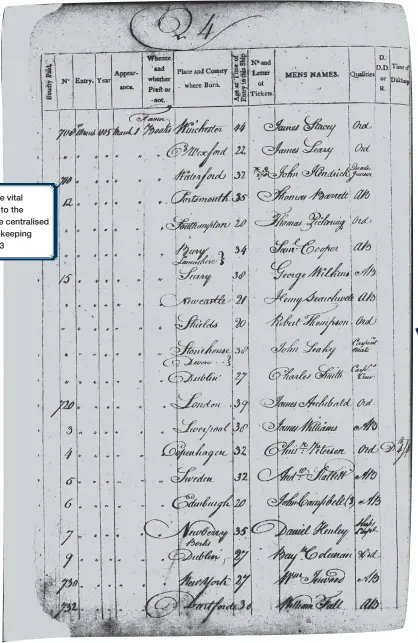 24
Bounty Paid.
Nº
Entry.
Year
Appear-
ance.
Whence
and
whether
Prest or
not.
Place and County
where Born.
Age at Time of
Entry in this Ship
Nº and
Letter
of
Tickets.
MENS NAMES.
Qualities
D.
D.D.
or
R.
Time of
e vital
to the
e centralised
keeping
3
March 1805 March Books Winchester 44 James Stacey Ord
" " " " " Wexford 22 James Leary Ord
710 " " " " Waterford 32 John Kendrick
12 " " " " Portsmouth 35 Thomas Barrett AB
" " " " Southampton 20 Thomas Pickering Ord
" " " " Bury 34 Saml Cooper AB
Lancashire
15 " " " " Surry 38 George Wilkins AB
" " " " Newcastle 21 Henry AB
" " " " Shields 20 Robert Thompson Ord
" " " " Stonehouse 38 John Leahy
Devon
" " " " Dublin 27 Charles Smith
720 " " " " London 39 James Archibald Ord
3 " " " " Liverpool 38 James Williams AB
4 " " " " Copenhagen 32 Peterson Ord D
5 " " " " Sweden 32 AB
6 " " " " Edinburgh 20 John Campbell (3) AB
7 " " " " Newberry 35 Daniel Henley
Berks
9 " " " " Dublin 27 Coleman Ord
730 " " " " New York 27 Wm Inwood AB
732 " " " " Hartford 30 William Fall AB